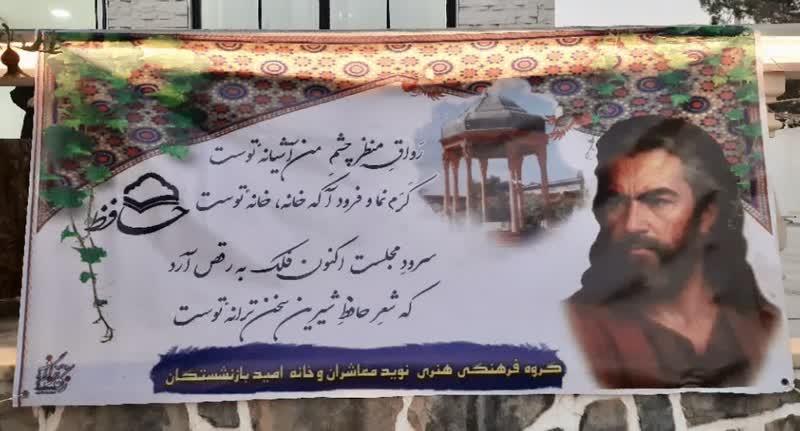 رَواقِ منظرِ چشمِ من آشیانهٔ توست
کَرَم نما و فرود آ که خانه، خانهٔ توست
حافظ
سرودِ مجلست اکنون فلک به رقص آرد
که شعرِ حافظِ شیرین سخن ترانهٔ توست
گروه فرهنگی هنری نوید معاشران و خانه امید بازنشستگان